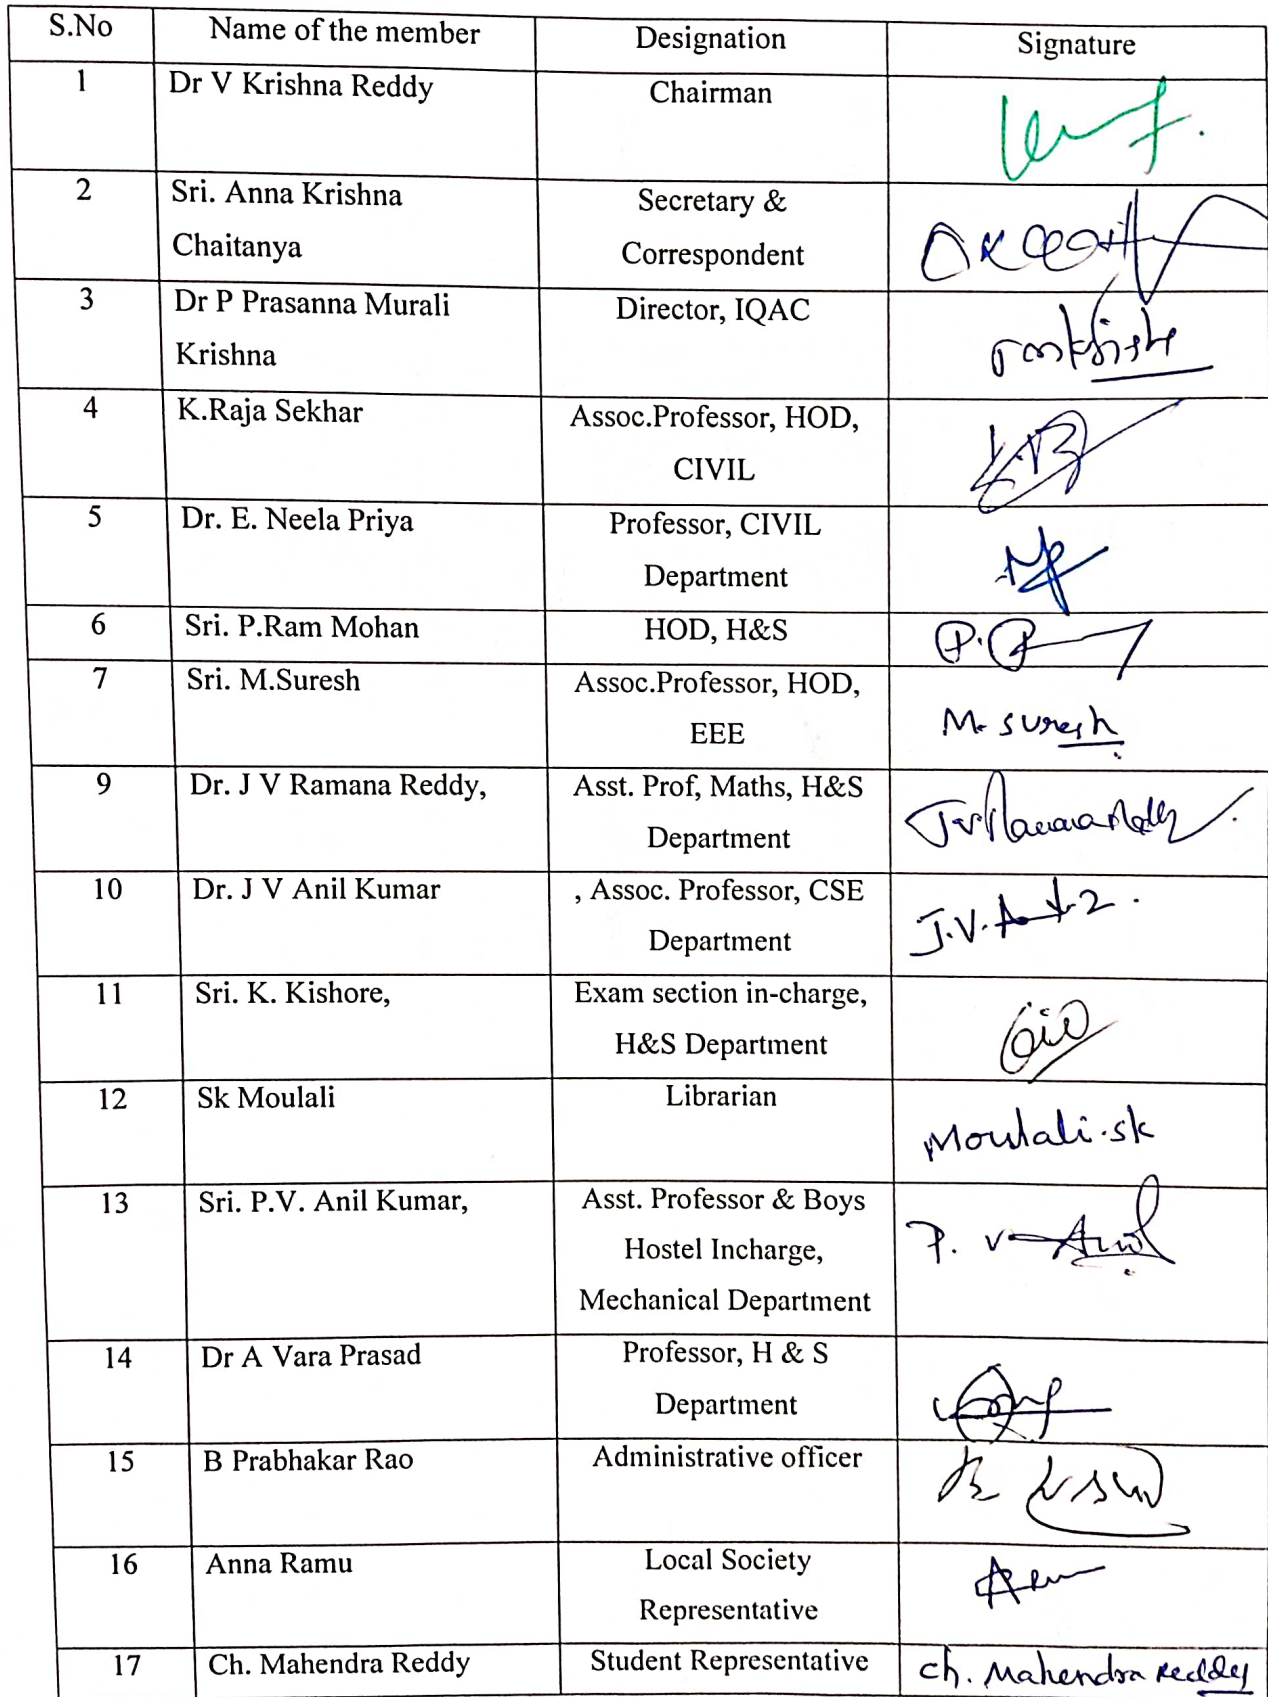 S.No Name of the member Designation Signature
1 Dr V Krishna Reddy Chairman
2 Sri. Anna Krishna Secretary &
Chaitanya Correspondent
3 Dr P Prasanna Murali Director, IQAC
Krishna
4 K.Raja Sekhar Assoc.Professor, HOD,
CIVIL
5 Dr. E. Neela Priya Professor, CIVIL
Department
6 Sri. P.Ram Mohan HOD, H&S
7 Sri. M.Suresh Assoc.Professor, HOD,
EEE M. Suresh
9 Dr. J V Ramana Reddy, Asst. Prof, Maths, H&S
Department JV Ramana Reddy
10 Dr. J V Anil Kumar , Assoc. Professor, CSE
Department J.V.
11 Sri. K. Kishore, Exam section in-charge,
H&S Department
12 Sk Moulali Librarian
Moulali.sk
13 Sri. P.V. Anil Kumar, Asst. Professor & Boys
Hostel Incharge, P. V Anil
Mechanical Department
14 Dr A Vara Prasad Professor, H & S
Department
15 B Prabhakar Rao Administrative officer
16 Anna Ramu Local Society
Representative
17 Ch. Mahendra Reddy Student Representative Ch. Mahendra Reddy